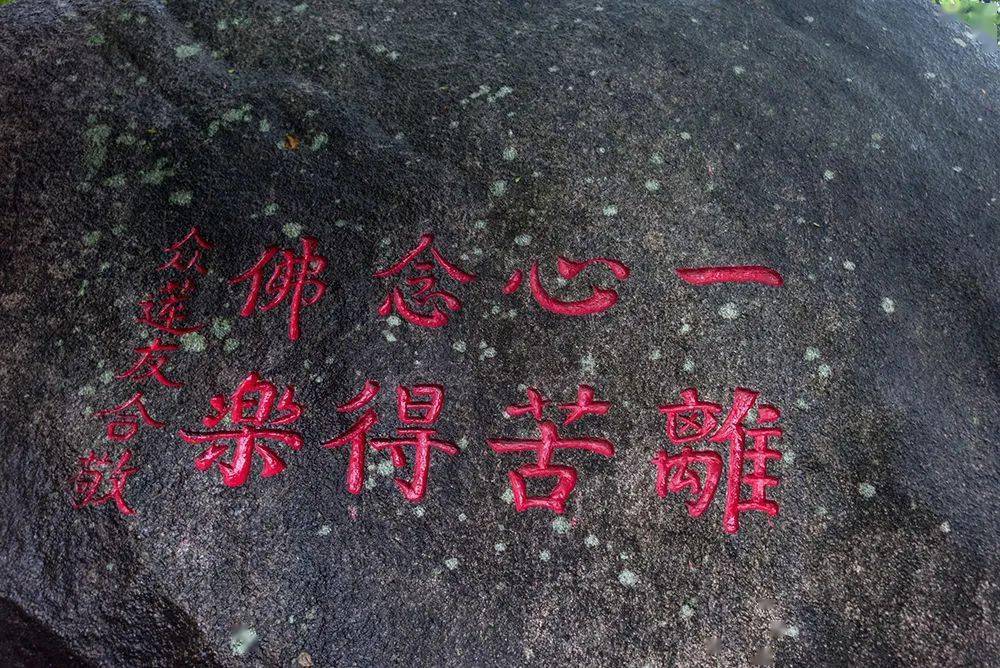 一心念佛
離苦得樂
众莲友合敬